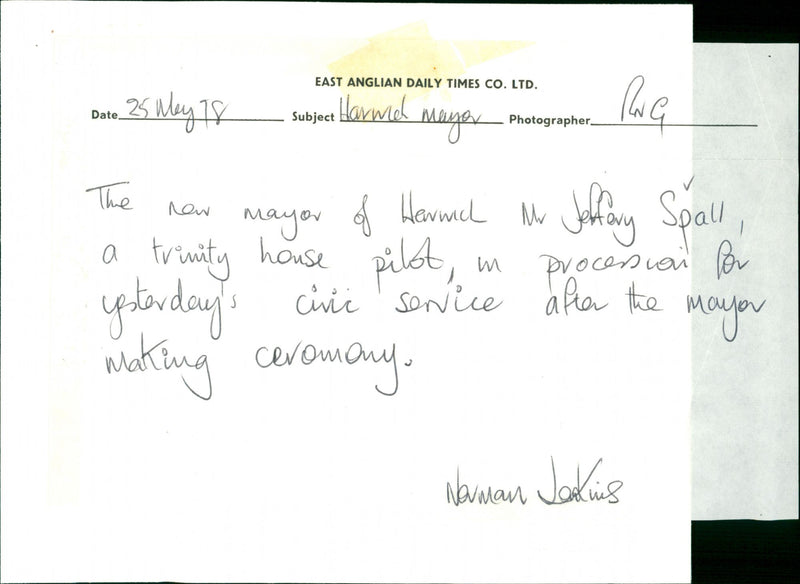 EAST ANGLIAN DAILY TIMES CO. LTD.
Date 25 May 78 Subject Harwich Mayor Photographer RWG
The new mayor of Harwich Mr Jeffory Spall,
a trinity house pilot, in procession for
yesterday's civic service after the mayor
making ceromony.
Norman Jenkins